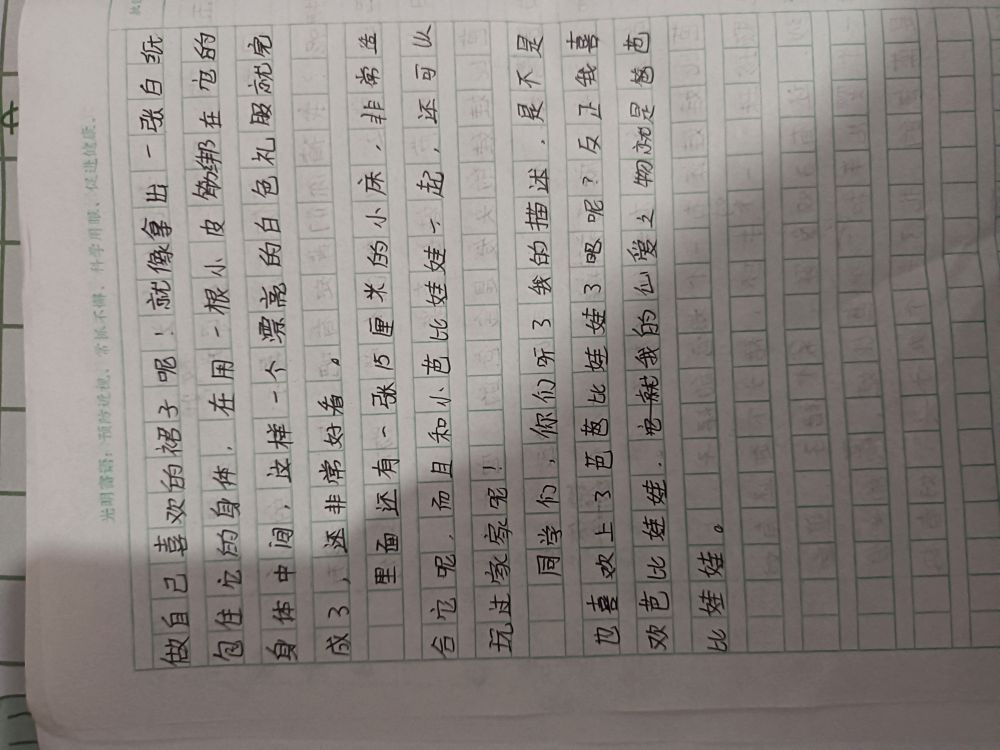 光明寄语：预防近视、常抓不懈、科学用眼、促进健康。
做自己喜欢的裙子呢！就像拿出一张白纸
包住它的身体，在用一根小皮筋绑在它的
身体中间，这样一个漂亮的白色礼服就完
成了，还非常好看。
里面还有一张15厘米的小床，非常适
合它呢，而且和小芭比娃娃一起，还可以
玩过家家呢！
同学们，你们听了我的描述，是不是
也喜欢上了芭芭比娃娃了吧呢？反正我喜
欢芭比娃娃，它就我的仙爱之物就是芭芭
比娃娃。